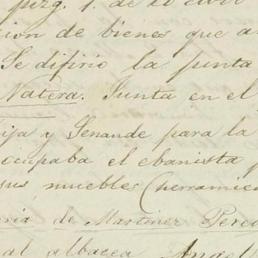 juzg. 1.º de lo civil
cion de bienes que a
Se difirió la junta
Natera. Junta en el
ija y Senande para la
ocupaba el ebanista
sus muebles (herramien
de Martinez Pere
al albacea Angel